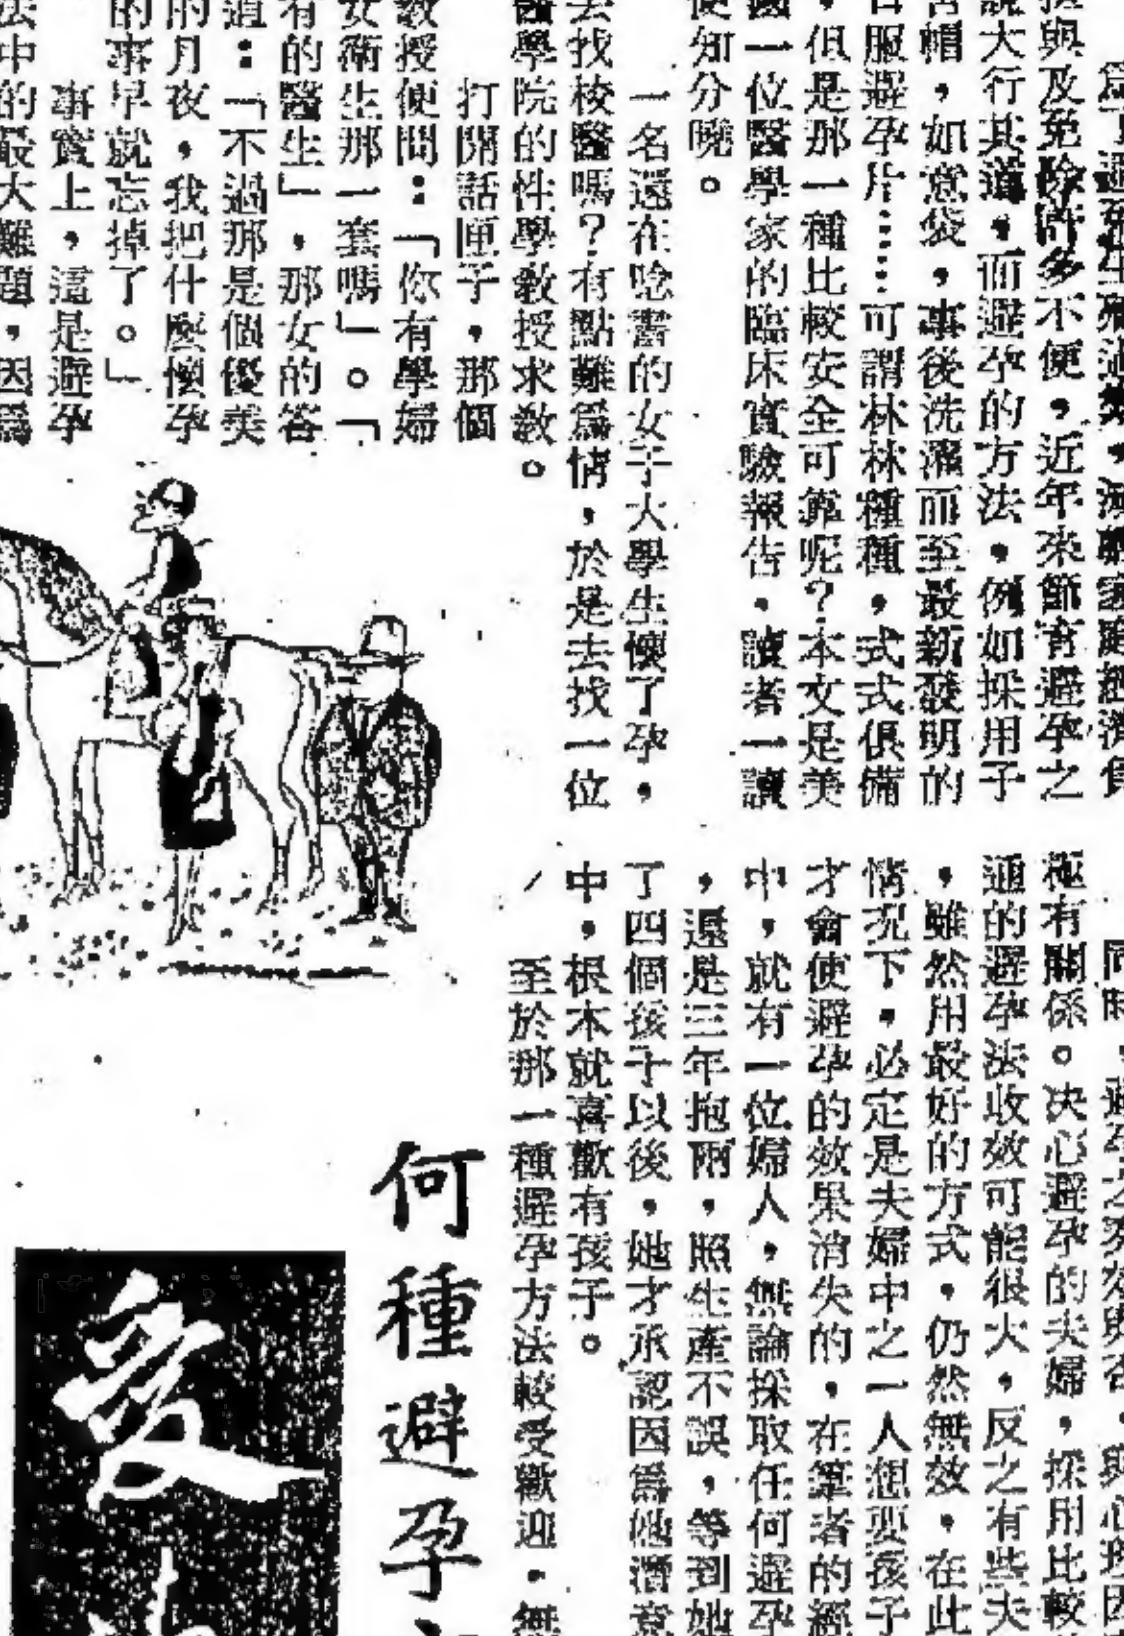 為了避免生殖過繁，減輕家庭經濟負
擔與及免除許多不便，近年來節育避孕之
說大行其道，而避孕的方法，例如採用子
宮帽，如意袋，事後洗滌而至最新發明的
口服避孕片……可謂林林種種，式式俱備
，但是那一種比較安全可靠呢？本文是美
國一位醫學家的臨床實驗報告，讀者一讀
便知分曉。
一名還在唸書的女子大學生懷了孕，
去找校醫嗎？有點難為情，於是去找一位
醫學院的性學教授求教。
打開話匣子，那個
教授便問：「你有學婦
女衛生那一套嗎」。「
有的醫生」，那女的答
道：「不過那是個優美
的月夜，我把什麼懷孕
的事早就忘掉了。」
事實上，這是避孕
法中的最大難題，因為
同時，避孕之奏效與否，與心理因
極有關係。決心避孕的夫婦，採用比較
通的避孕法收效可能很大，反之有些夫
，雖然用最好的方式，仍然無效，在此
情況下，必定是夫婦中之一人想要孩子
才會使避孕的效果消失的，在筆者的經
中，就有一位婦人，無論採取任何避孕
，還是三年抱兩，照生產不誤，等到她
了四個孩子以後，她才承認因為她潛意
中，根本就喜歡有孩子。
至於那一種避孕方法較受歡迎，無
何種避孕
愛